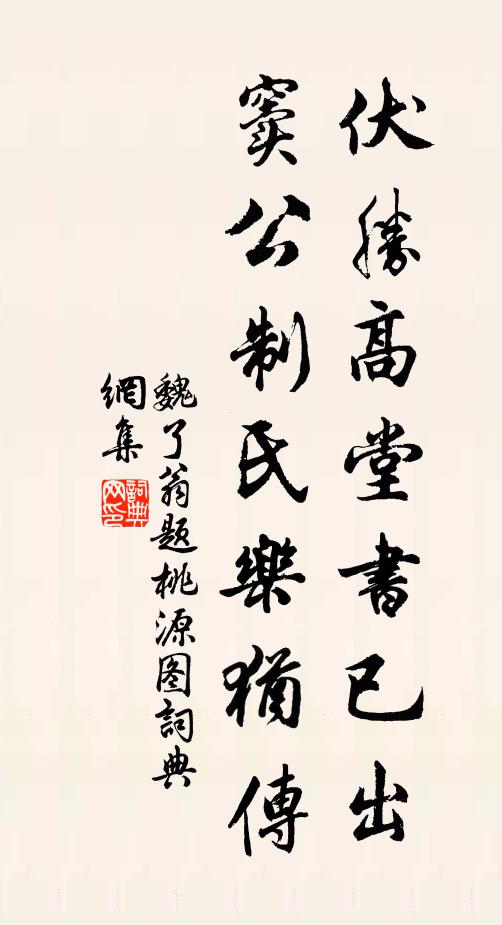 伏勝高堂書已出
竇公制氏樂猶傳
魏了翁題桃源图詞典
網集
詞典网印